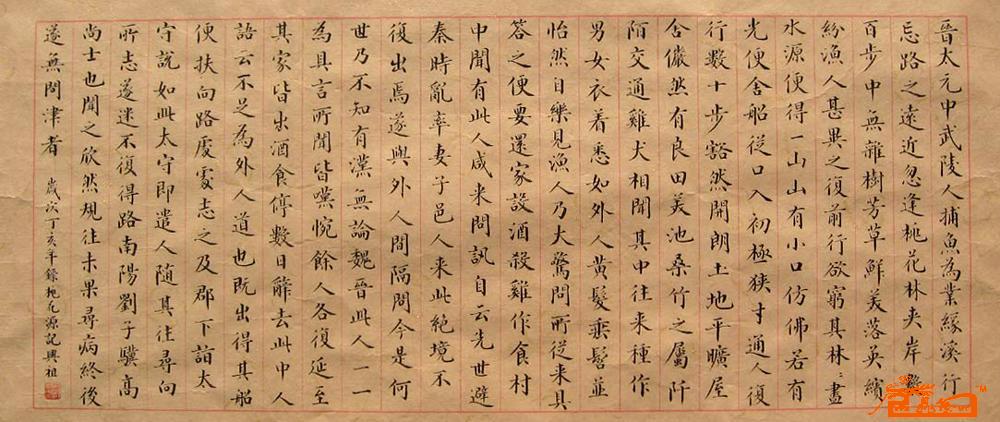 晉太元中武陵人捕魚為業緣溪行
忘路之遠近忽逢桃花林夾岸數
百步中無雜樹芳草鮮美落英繽
紛漁人甚異之復前行欲窮其林〻盡
水源便得一山山有小口仿佛若有
光便舍船從口入初極狹才通人復
行數十步豁然開朗土地平曠屋
舍儼然有良田美池桑竹之屬阡
陌交通雞犬相聞其中往来種作
男女衣着悉如外人黄髮垂髫並
怡然自樂見漁人乃大驚問所從来具
答之便要還家設酒殺雞作食村
中聞有此人咸来問訊自云先世避
秦時亂率妻子邑人来此絕境不
復出焉遂與外人間隔問今是何
世乃不知有漢無論魏晉此人一一
為具言所聞皆嘆惋餘人各復延至
其家皆出酒食停數日辭去此中人
語云不足為外人道也既出得其船
便扶向路處處志之及郡下詣太
守說如此太守即遣人隨其往尋向
所志遂迷不復得路南陽劉子驥高
尚士也聞之欣然規往未果尋病終後
遂無問津者 歲次丁亥年錄桃花源記興祖